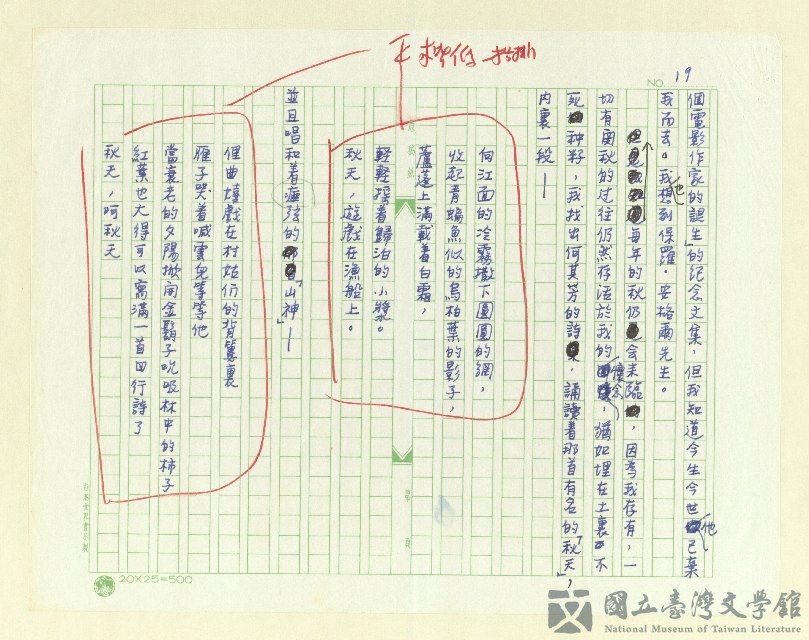 NO. 19
個電影作家的誕生」的紀念文集，但我知道今生今世他已棄
我而去。我也想到保羅．安格爾先生。
每年的秋仍會來臨，因為我存有，一
切有關秋的過往仍然存活於我的懷念，猶如埋在土裏不
死種籽，我找出何其芳的詩，誦讀着那首有名的「秋天」，
內裏一段—
向江面的冷霧撒下圓圓的網，
收起青鯿魚似的烏桕葉的影子，
蘆蓬上滿載着白霜，
輕輕搖着歸泊的小槳。
秋天，遊戲在漁船上。
並且唱和着瘂弦的「山神」—
俚曲嬉戲在村姑們的背簍裏
雁子哭着喊雲兒等等他
當衰老的夕陽掀開金鬍子吮吸林中的柿子
紅葉也大得可以寫滿一首四行詩了
秋天，呵秋天
20X25=500
國立臺灣文學館
National Museum of Taiwan Literature